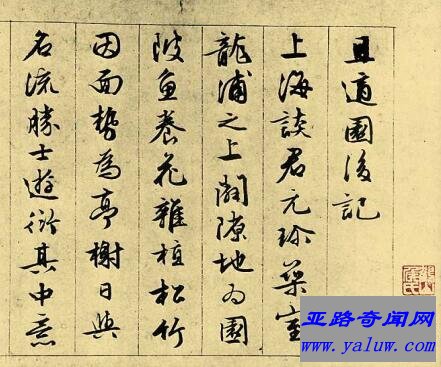 且適園後記
上海談君元珍築室
龍浦之上闢隙地為園
陂魚養花雜植松竹
因面勢為亭榭日與
名流勝士遊衍其中意
亚路奇闻网
www.yaluw.com